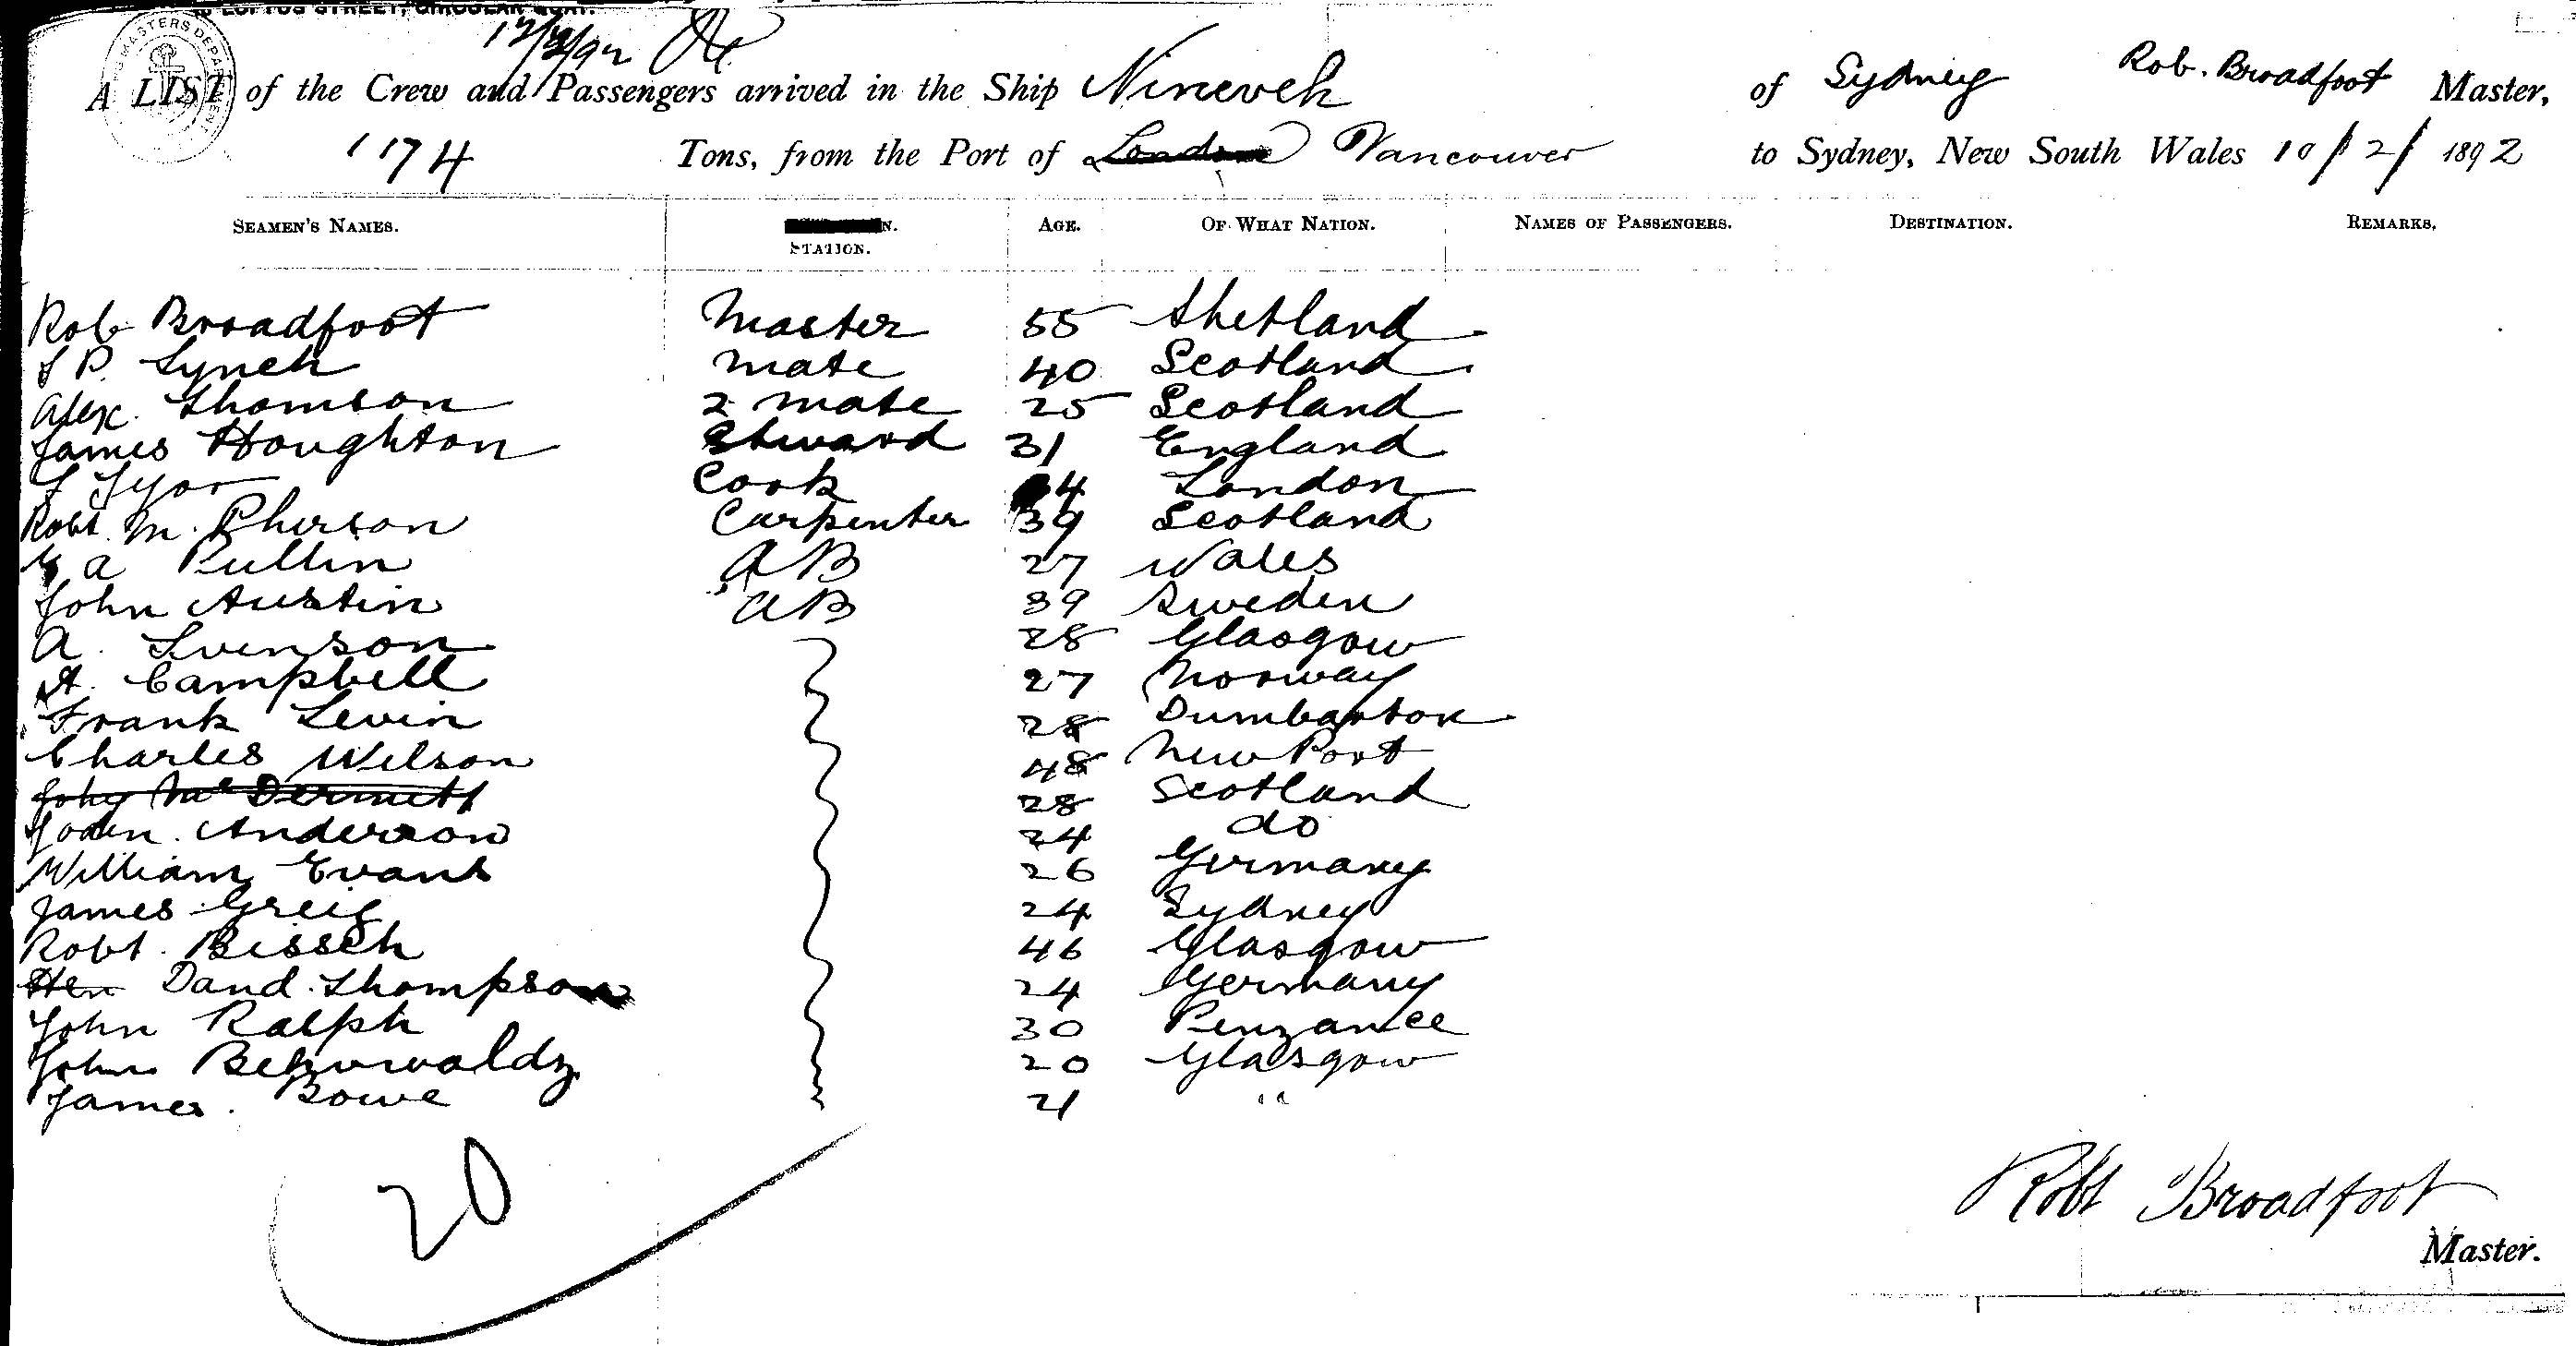 LOFTUS STREET, CIRCULAR QUAY.
12/2/92
A LIST of the Crew and Passengers arrived in the Ship Nineveh of Sydney Rob. Broadfoot Master,
1174 Tons, from the Port of Vancouver to Sydney, New South Wales 10/2/1892
SEAMEN'S NAMES. STATION. AGE. OF WHAT NATION. NAMES OF PASSENGERS. DESTINATION. REMARKS.
Rob Broadfoot Master 55 Shetland
P. Lynch Mate 40 Scotland
Alex. Thomson 2 mate 25 Scotland
James Houghton Steward 31 England
Cook 4 London
Robt. M. Pherson Carpenter 39 Scotland
a Pullin AB 27 Wales
John Austin AB 39 Sweden
A. Svenson 28 Glasgow
A. Campbell 27 Norway
Frank Levin 28 Dumbarton
Charles Wilson 48 New Port
John McDermett 28 Scotland
John. Anderson 24 do
William Evans 26 Germany
James Greig 24 Sydney
Robt. Bissch 46 Glasgow
Hen Dand. Thompson 24 Germany
John Ralph 30 Penzance
John 20 Glasgow
James. Bowe 21 "
20
Robt Broadfoot
Master.